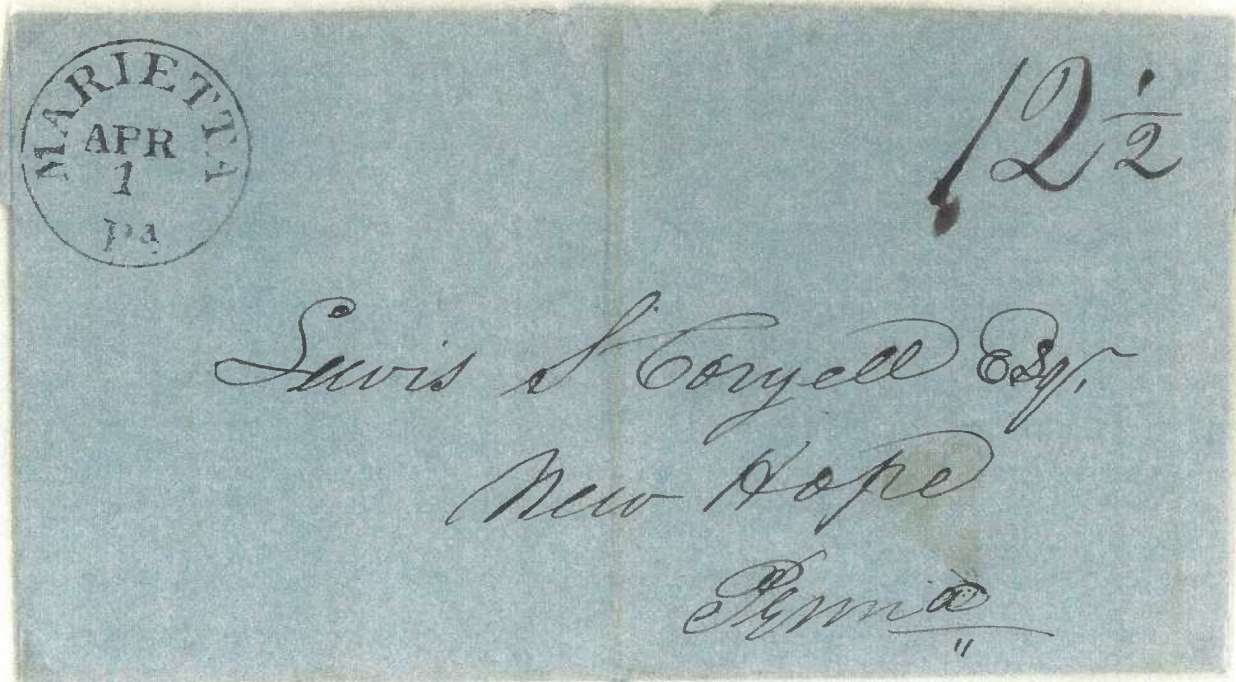 MARIETTA
APR
1
Pa
12 1/2
Lewis S Coryell Esqr.
New Hope
Penna